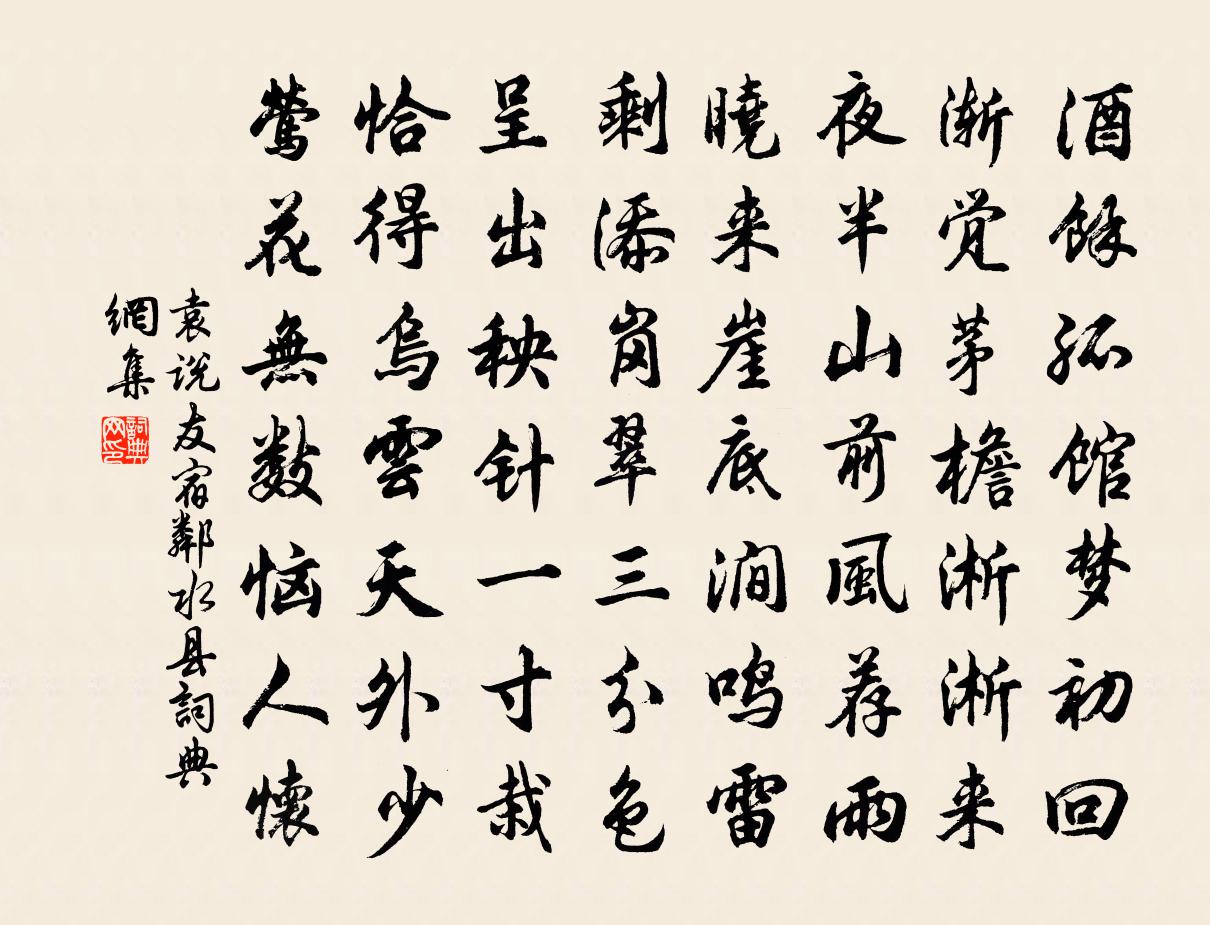 酒餘孤馆梦初回
渐觉茅檐淅淅来
夜半山前風荐雨
曉来崖底涧鸣雷
剩添岗翠三分色
呈出秧针一寸栽
恰得乌雲天外少
莺花無数恼人懷
袁说友宿鄰水县詞典
網集
詞典
网印